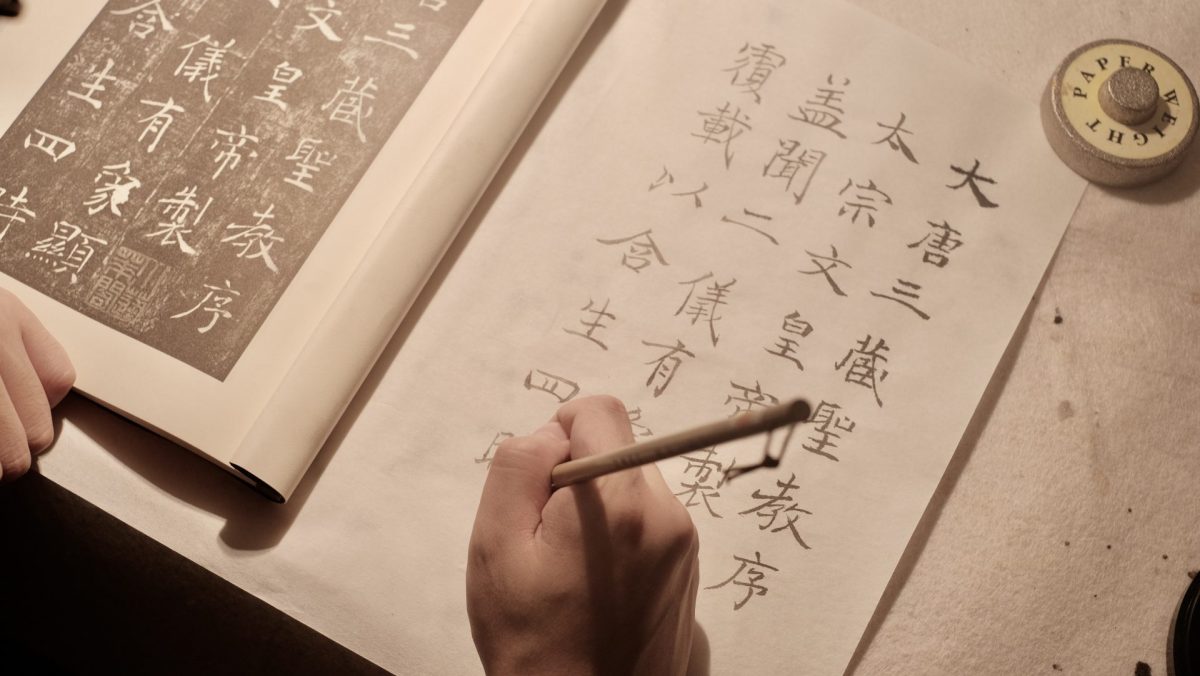 PAPER WEIGHT
大唐三藏聖教序
太宗文皇帝製
盖聞二儀有
覆載以含生四
三藏聖教序
文皇帝製
儀有象顯
含生四時